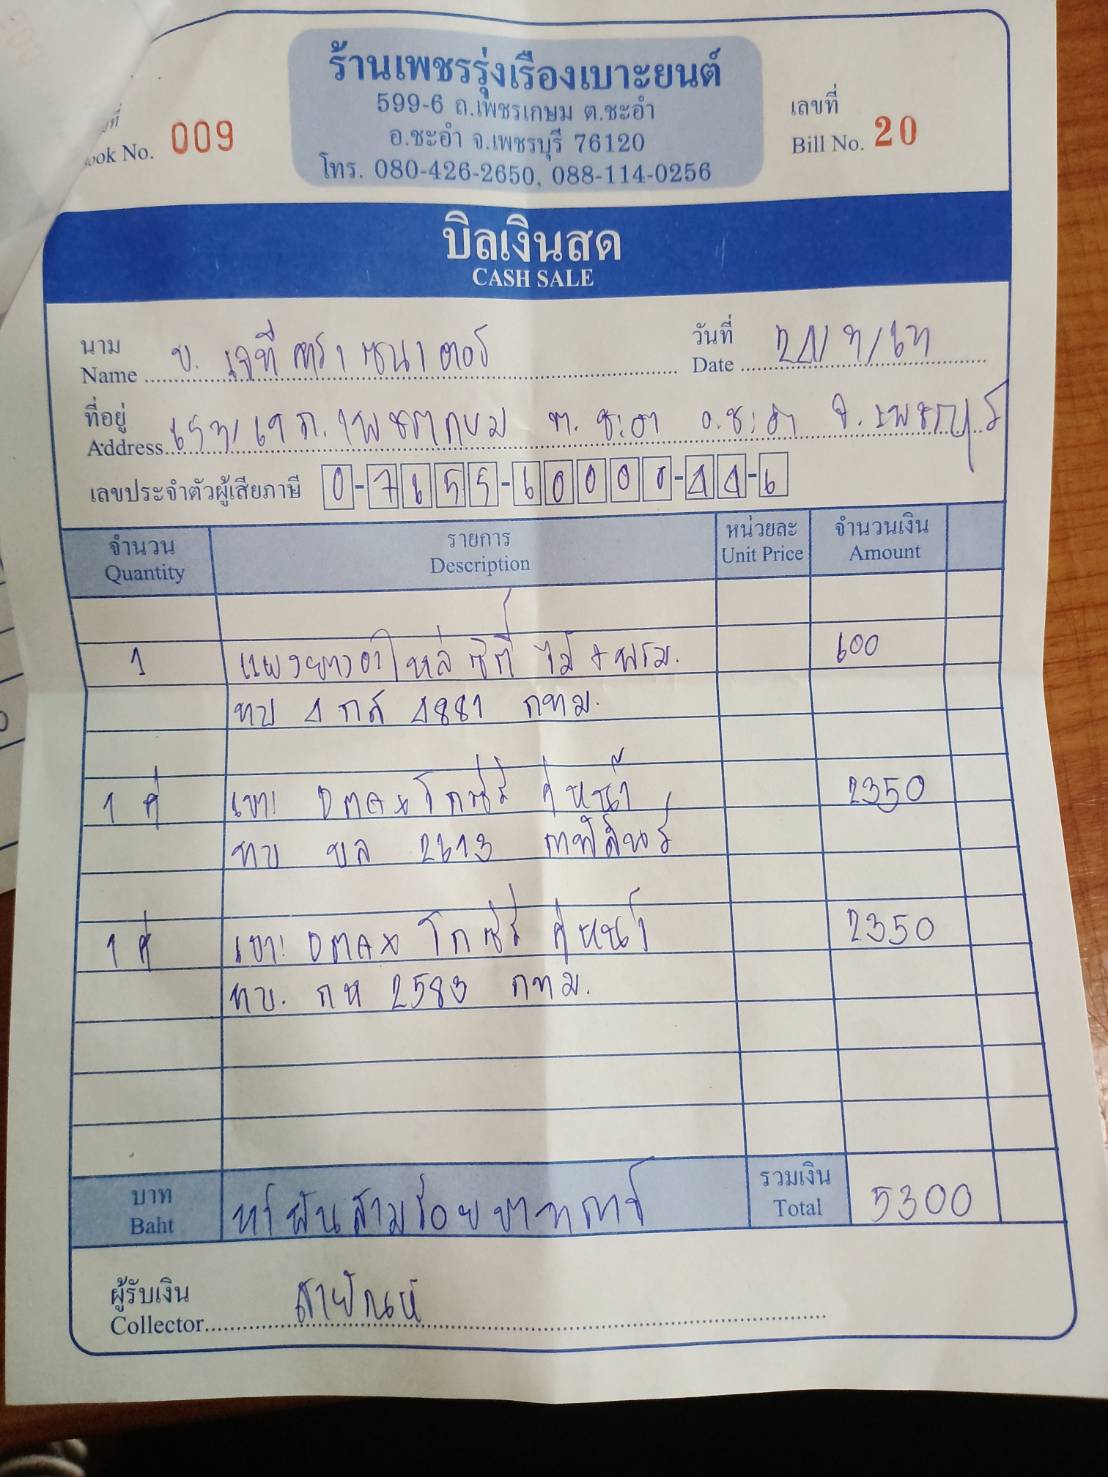 ร้านเพชรรุ่งเรืองเบาะยนต์
599-6 ถ.เพชรเกษม ต.ชะอำ
อ.ชะอำ จ.เพชรบุรี 76120
โทร. 080-426-2650, 088-114-0256
ook No. 009
เลขที่
Bill No. 20
บิลเงินสด
CASH SALE
นาม
Name บ. เจที
วันที่
Date
ที่อยู่
Address ถ.เพชรเกษม ต. ชะอำ อ.ชะอำ จ.เพชรบุรี
เลขประจำตัวผู้เสียภาษี
จำนวน รายการ หน่วยละ จำนวนเงิน
Quantity Description Unit Price Amount
1 ซิตี้ ไม้ + พรม. 600
ทบ กทม.
1 คู่ เบาะ DMAX คู่หน้า 2350
ทบ บล 2613 กาฬสินธุ์
1 คู่ เบาะ DMAX คู่หน้า 2350
ทบ. กห 2583 กทม.
บาท
Baht ห้าพันสามร้อยบาทถ้วน
รวมเงิน
Total 5300
ผู้รับเงิน
Collector สายัณห์